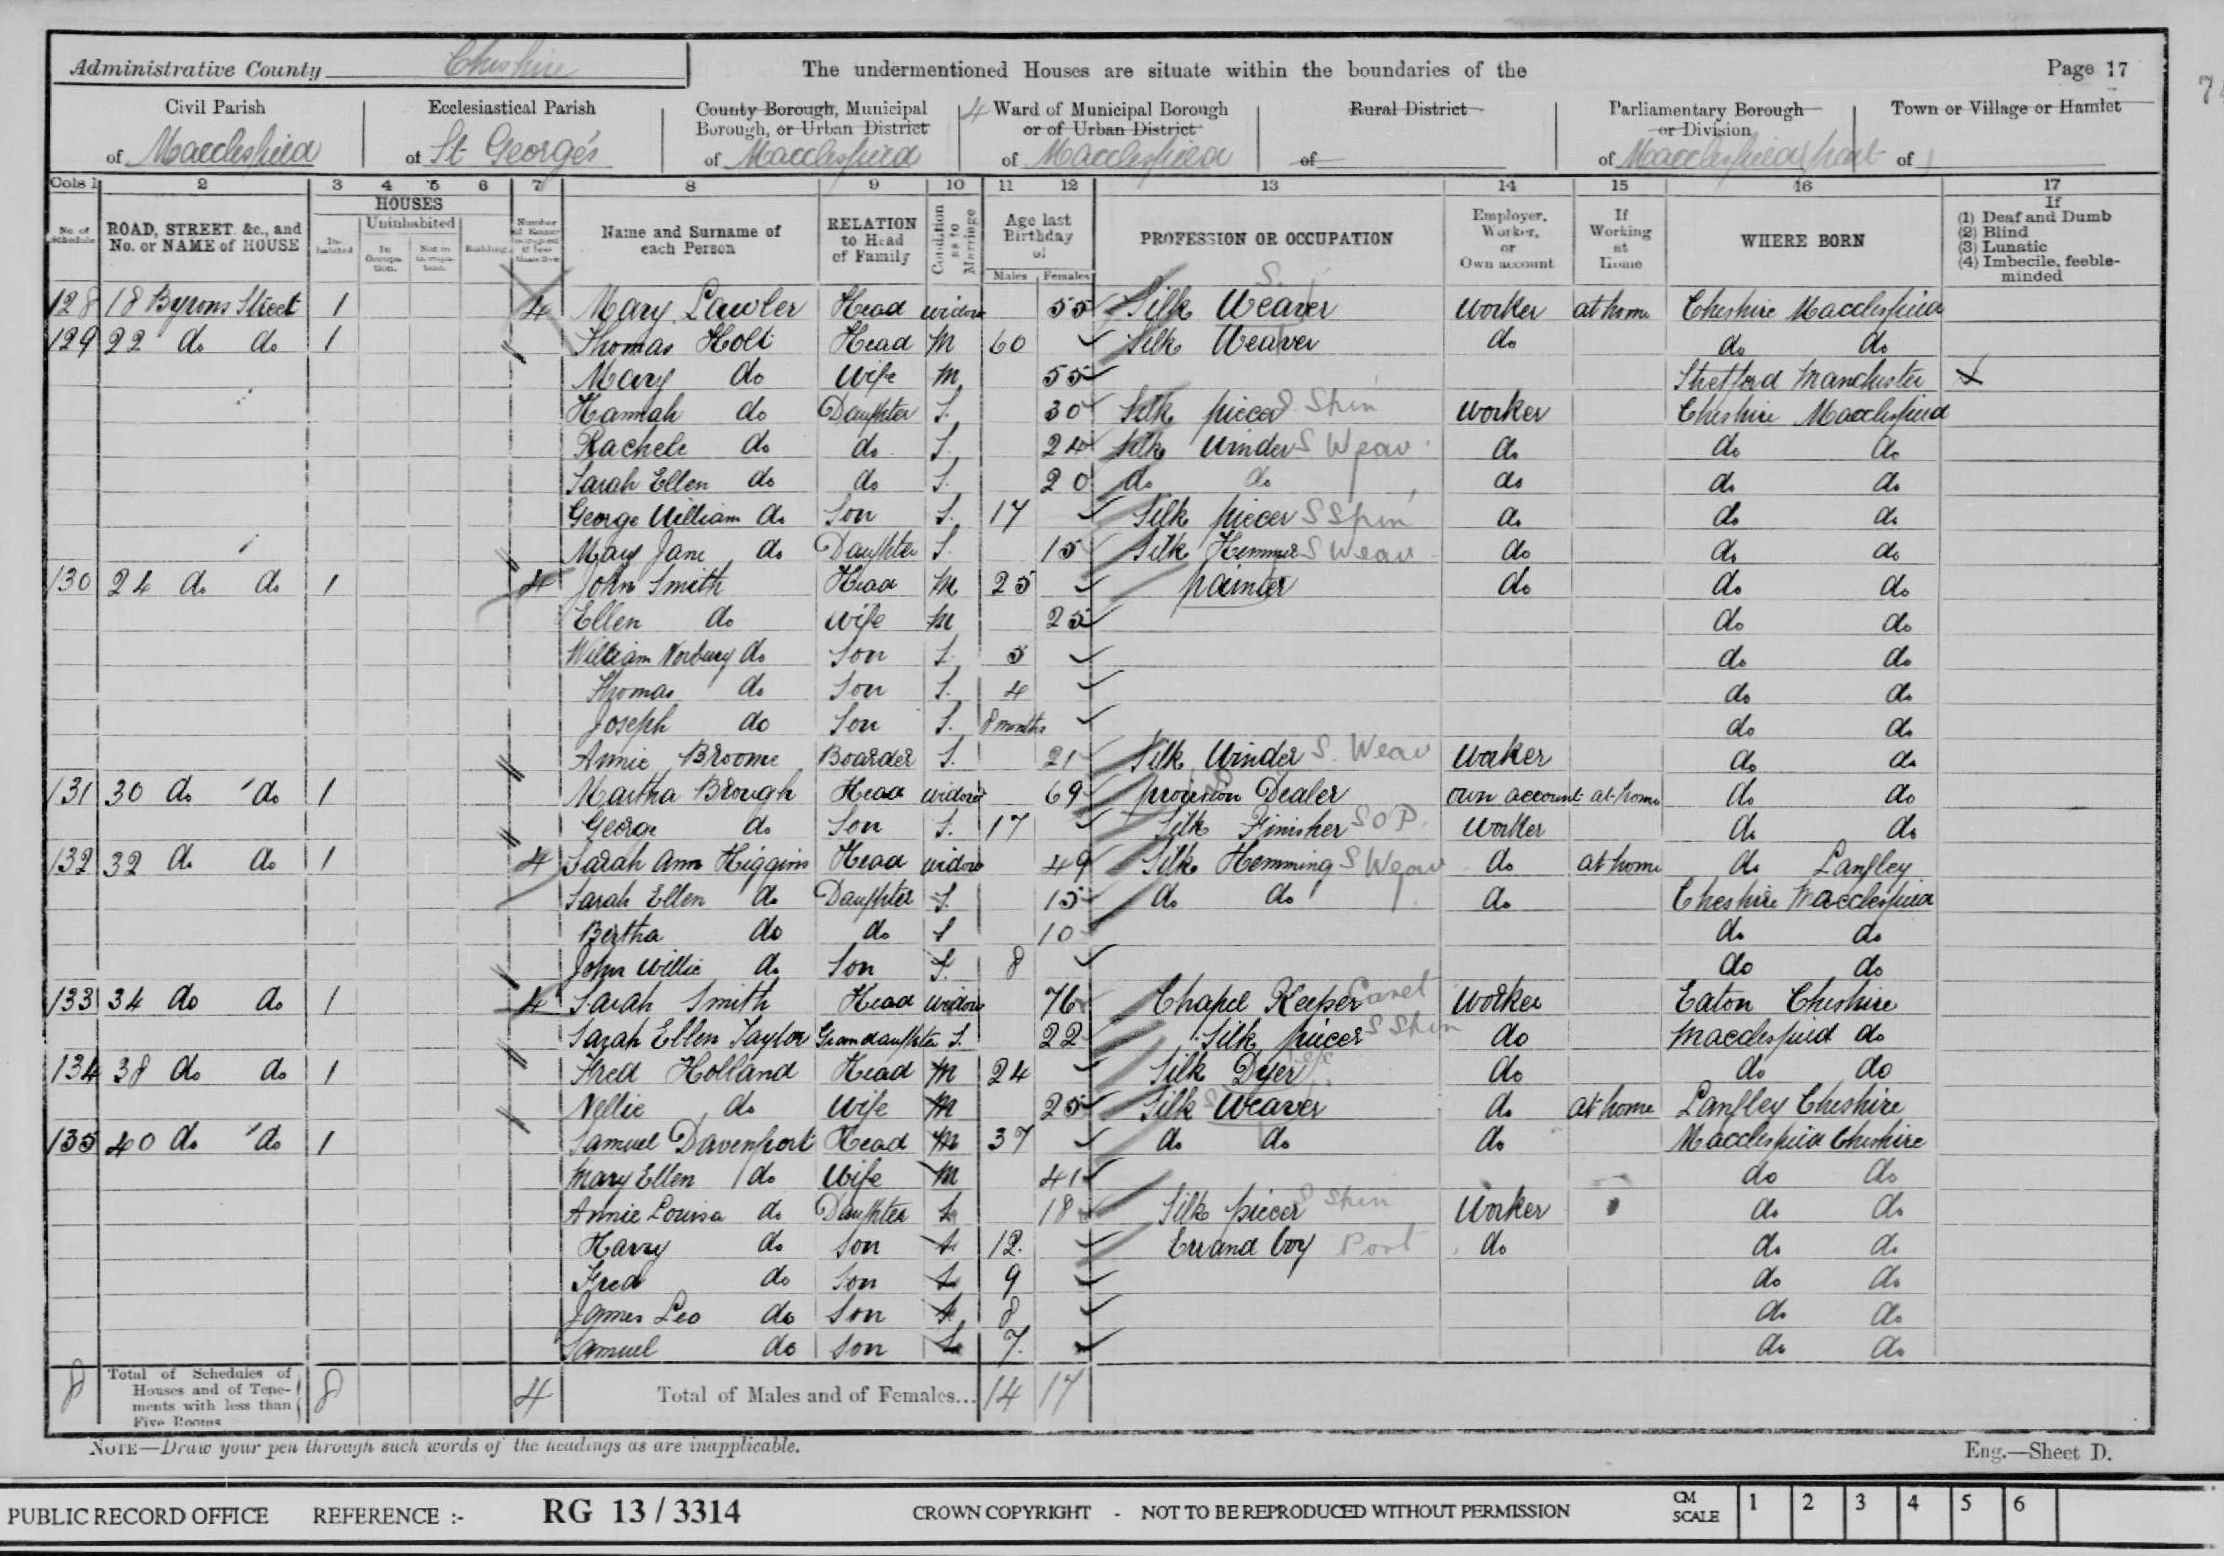 Administrative County Cheshire The undermentioned Houses are situate within the boundaries of the Page 17
Civil Parish Ecclesiastical Parish County Borough, Municipal 4 Ward of Municipal Borough Rural District Parliamentary Borough Town or Village or Hamlet
Borough, or Urban District or of Urban District or Division
of Macclesfield of St George's of Macclesfield of Macclesfield of of Macclesfield part of
Cols 1 2 3 4 5 6 7 8 9 10 11 12 13 14 15 16 17
No of Schedule ROAD, STREET, &c., and No. or NAME of HOUSE HOUSES Inhabited Uninhabited In Occupation. Not in Occupation. Building Number of Rooms occupied if less than five Name and Surname of each Person RELATION to Head of Family Condition as to Marriage Age last Birthday of Males Females PROFESSION OR OCCUPATION Employer, Worker, or Own account If Working at Home WHERE BORN If (1) Deaf and Dumb (2) Blind (3) Lunatic (4) Imbecile, feeble-minded
128 18 Byrons Street 1 4 Mary Lawler Head widow 55 Silk Weaver S. Worker at home Cheshire Macclesfield
129 22 do do 1 Thomas Holt Head M 60 Silk Weaver do do do
Mary do Wife M 55 Stretford Manchester
Hannah do Daughter S. 30 Silk piecer S. Spin Worker Cheshire Macclesfield
Rachele do do S. 24 Silk Winder S Weav do do do
Sarah Ellen do do S. 20 do do do do do
George William do Son S. 17 Silk piecer S Spin do do do
Mary Jane do Daughter S. 15 Silk Hemmer S Weav do do do
130 24 do do 1 4 John Smith Head M 25 painter do do do
Ellen do wife M 25 do do
William Norbury do Son S. 5 do do
Thomas do Son S. 4 do do
Joseph do Son S. 8 months do do
Annie Broome Boarder S. 21 Silk Winder S. Weav Worker do do
131 30 do do 1 Martha Brough Head widow 69 provision Dealer own account at home do do
George do Son S. 17 Silk Finisher S O P. Worker do do
132 32 do do 1 4 Sarah Ann Higgins Head widow 49 Silk Hemming S Weav do at home do Langley
Sarah Ellen do Daughter S. 15 do do do Cheshire Macclesfield
Bertha do do S 10 do do
John Willie do Son S. 8 do do
133 34 do do 1 4 Sarah Smith Head widow 76 Chapel Keeper Caret Worker Eaton Cheshire
Sarah Ellen Taylor Grandaughter S. 22 Silk piecer S Spin do Macclesfield do
134 38 do do 1 Fred Holland Head M 24 Silk Dyer do do do
Nellie do Wife M 25 Silk Weaver do at home Langley Cheshire
135 40 do do 1 Samuel Davenport Head M 37 do do do Macclesfield Cheshire
Mary Ellen do Wife M 41 do do
Annie Louisa do Daughter S 18 Silk piecer S Spin Worker do do
Harry do Son S 12. Errand boy Port do do do
Fred do Son S 9 do do
James Leo do Son S 8 do do
Samuel do Son S 7. do do
8 Total of Schedules of Houses and of Tenements with less than Five Rooms 8 4 Total of Males and of Females... 14 17
NOTE—Draw your pen through such words of the headings as are inapplicable. Eng.—Sheet D.
PUBLIC RECORD OFFICE REFERENCE :- RG 13 / 3314 CROWN COPYRIGHT - NOT TO BE REPRODUCED WITHOUT PERMISSION CM SCALE 1 2 3 4 5 6